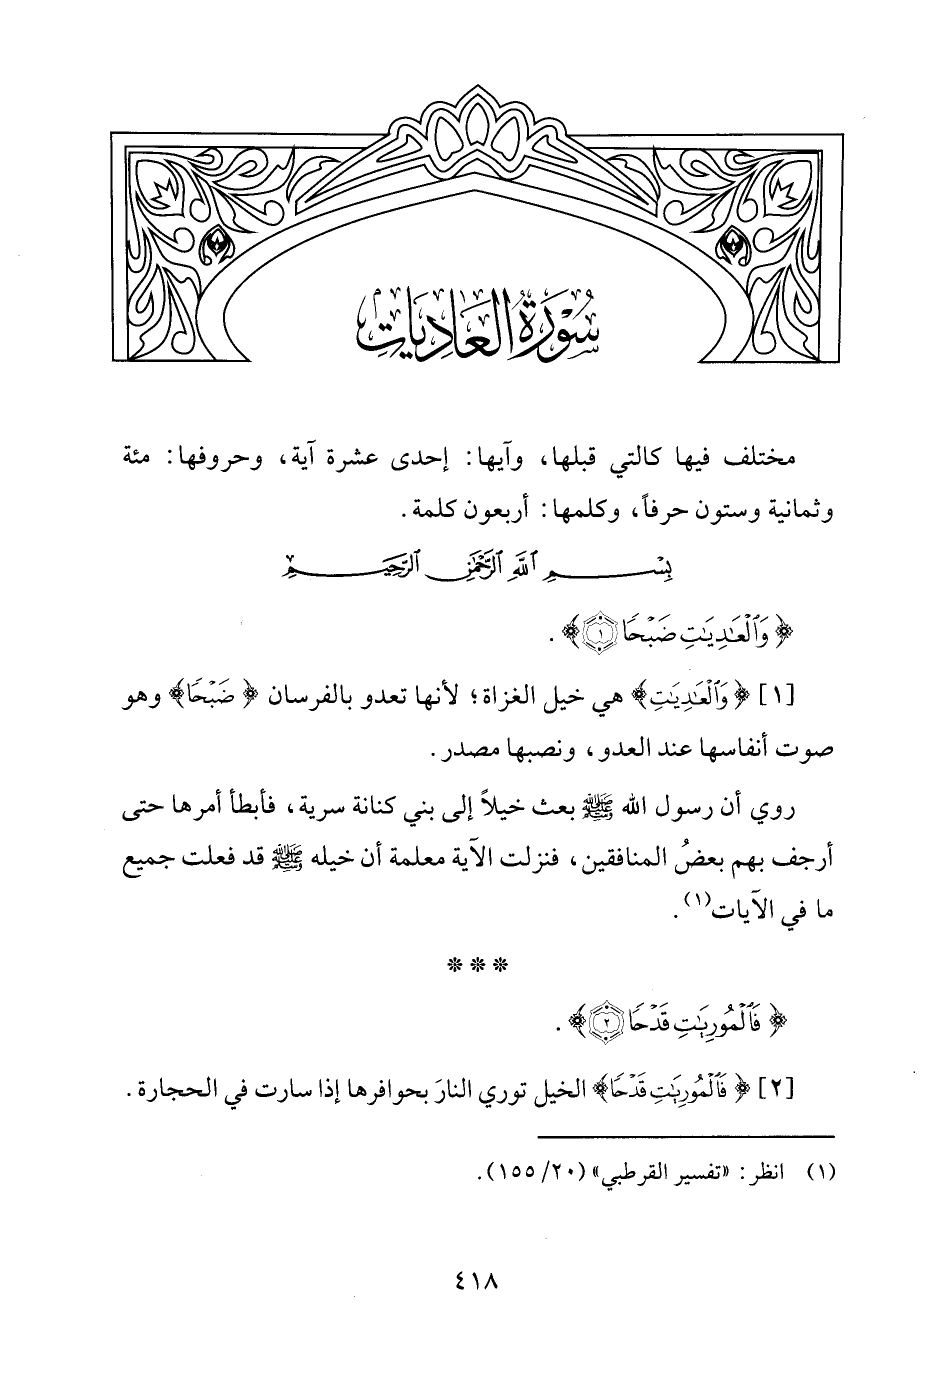 سُوْرَةُ العَادِيَاتِ
مختلف فيها كالتي قبلها، وآيها: إحدى عشرة آية، وحروفها: مئة
وثمانية وستون حرفاً، وكلمها: أربعون كلمة.
بِسْمِ ٱللَّهِ ٱلرَّحْمَٰنِ ٱلرَّحِيمِ
﴿وَٱلْعَٰدِيَٰتِ ضَبْحًا ١﴾.
[١] ﴿وَٱلْعَٰدِيَٰتِ﴾ هي خيل الغزاة؛ لأنها تعدو بالفرسان ﴿ضَبْحًا﴾ وهو
صوت أنفاسها عند العدو، ونصبها مصدر.
روي أن رسول الله ﷺ بعث خيلاً إلى بني كنانة سرية، فأبطأ أمرها حتى
أرجف بهم بعضُ المنافقين، فنزلت الآية معلمة أن خيله ﷺ قد فعلت جميع
ما في الآيات(١).
* * *
﴿فَٱلْمُورِيَٰتِ قَدْحًا ٢﴾.
[٢] ﴿فَٱلْمُورِيَٰتِ قَدْحًا﴾ الخيل توري النارَ بحوافرها إذا سارت في الحجارة.
(١) انظر: «تفسير القرطبي» (٢٠/ ١٥٥).
٤١٨